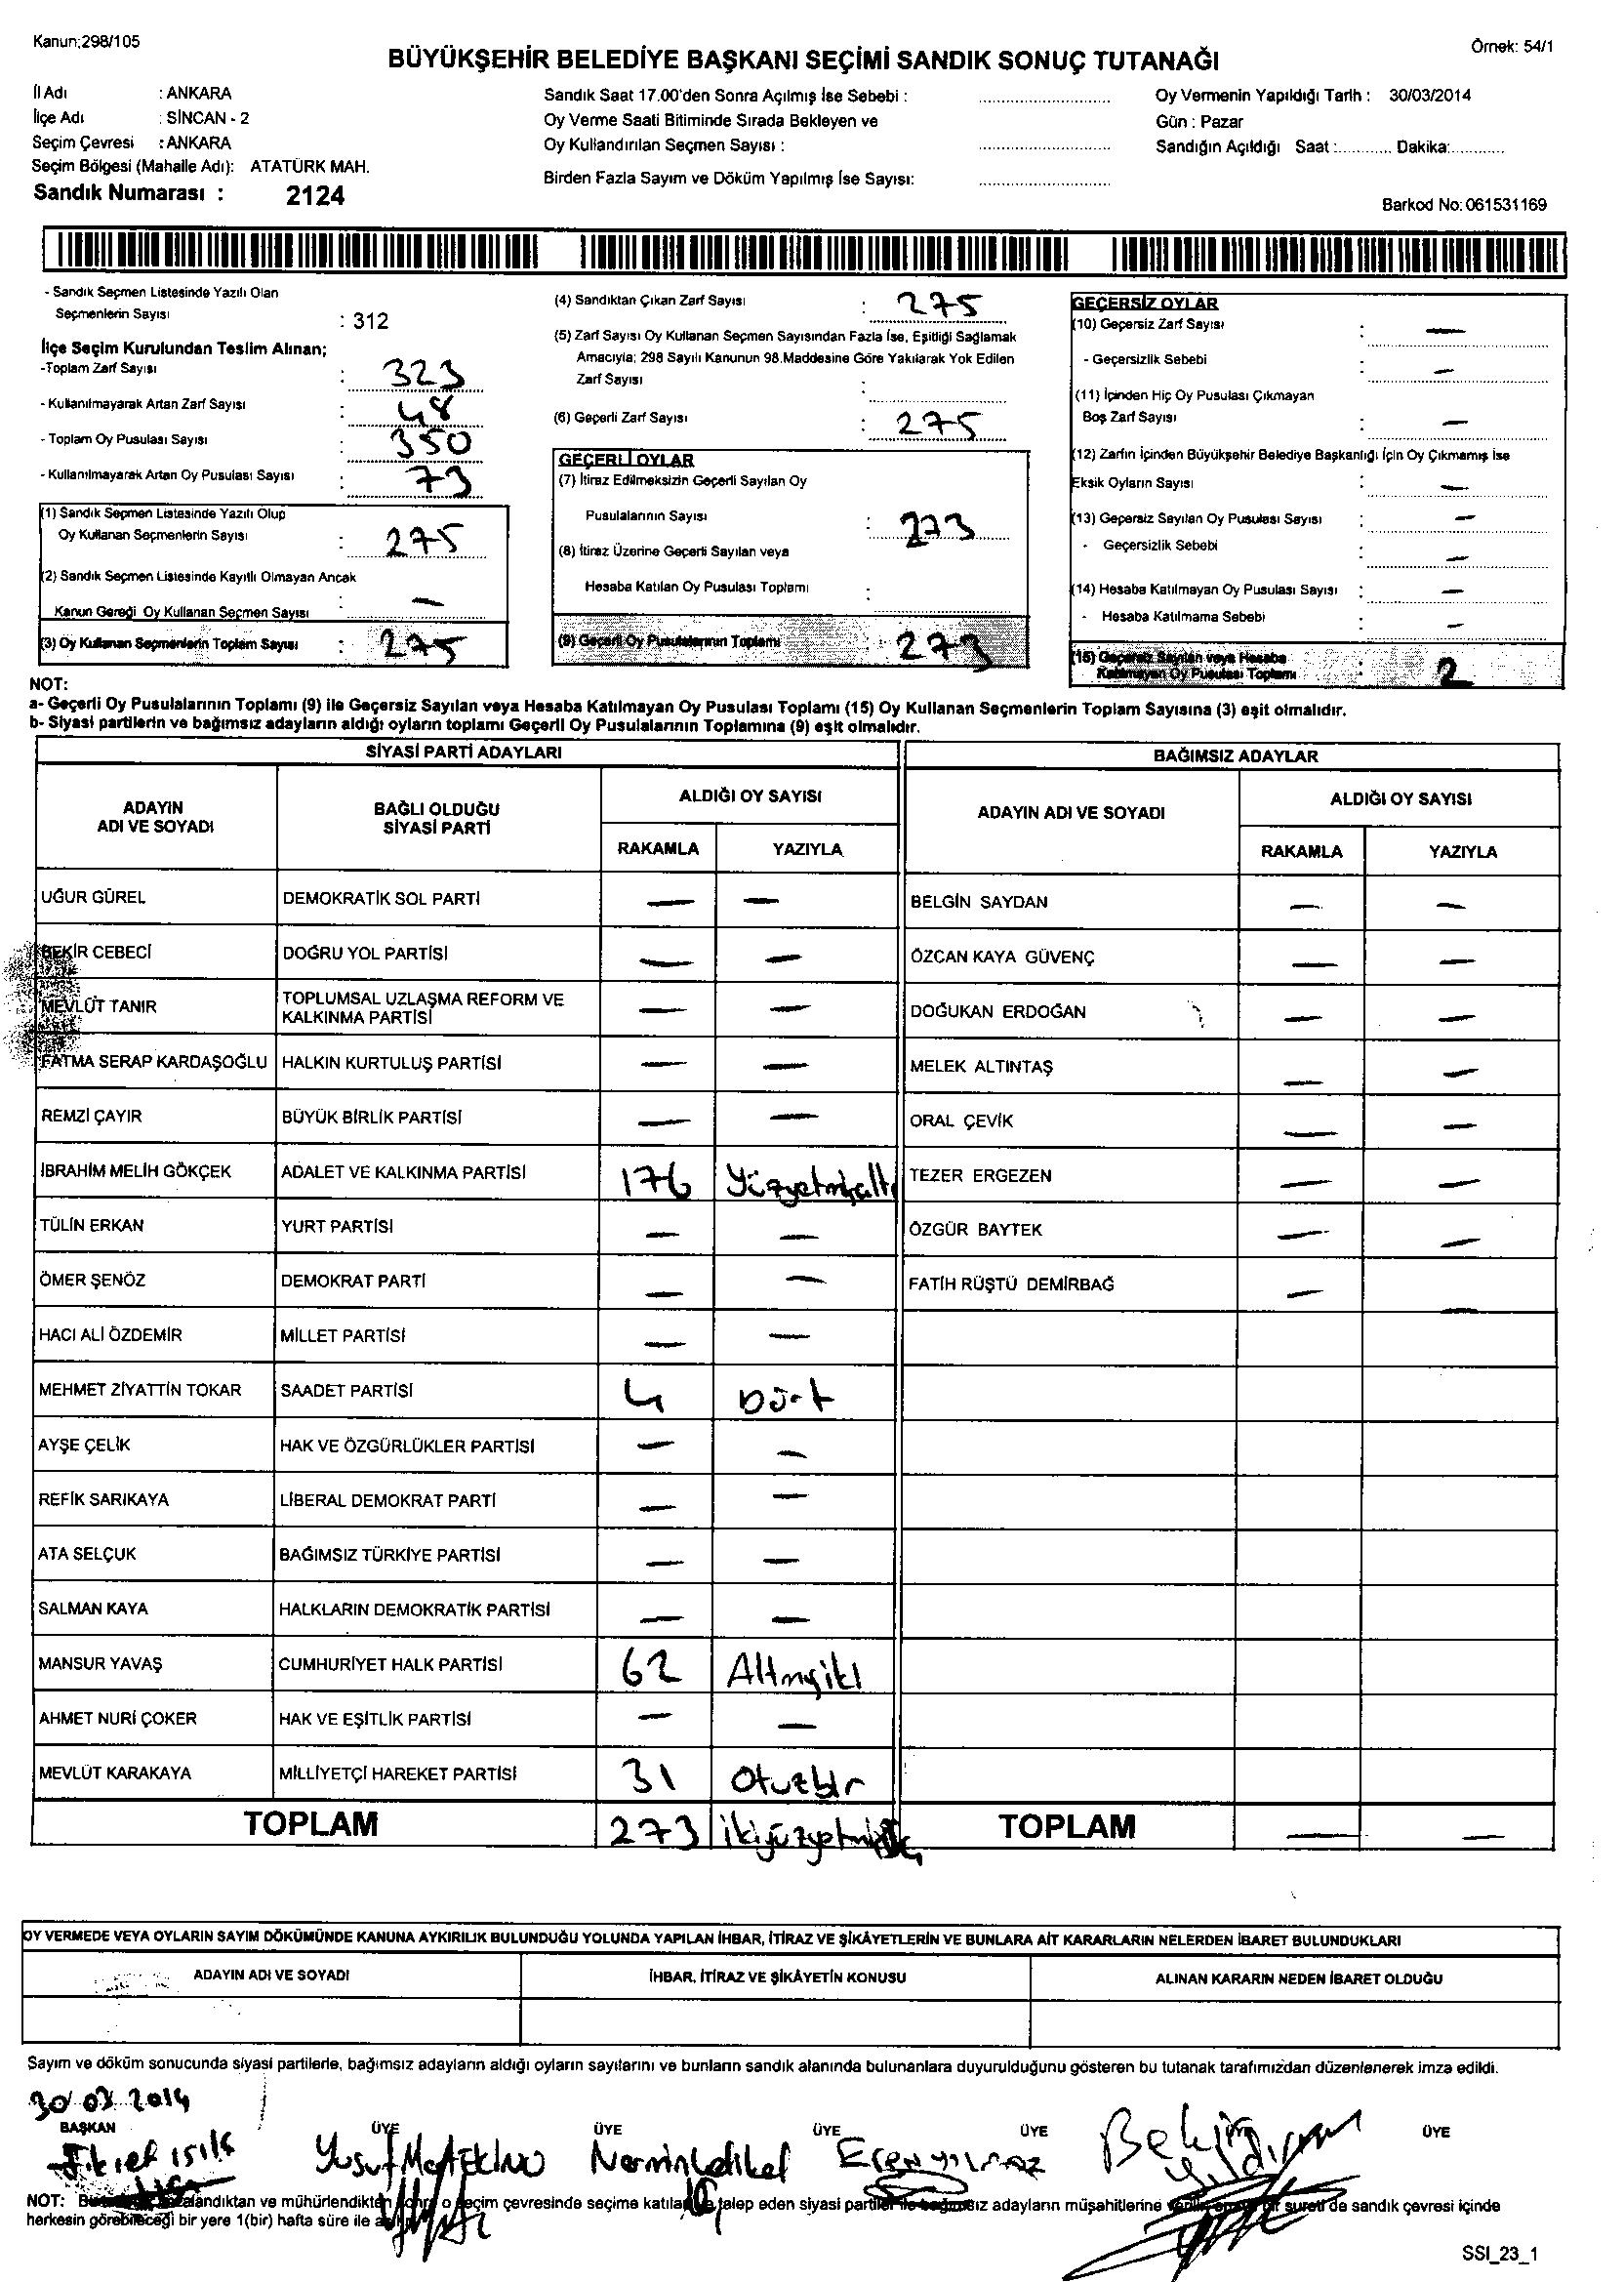 Kanun;298/105
Örnek: 54/1
BÜYÜKŞEHİR BELEDİYE BAŞKANI SEÇİMİ SANDIK SONUÇ TUTANAĞI
İl Adı : ANKARA
İlçe Adı : SİNCAN - 2
Seçim Çevresi : ANKARA
Seçim Bölgesi (Mahalle Adı): ATATÜRK MAH.
Sandık Numarası : 2124
Sandık Saat 17.00'den Sonra Açılmış İse Sebebi :
Oy Verme Saati Bitiminde Sırada Bekleyen ve
Oy Kullandırılan Seçmen Sayısı :
Birden Fazla Sayım ve Döküm Yapılmış İse Sayısı:
Oy Vermenin Yapıldığı Tarih : 30/03/2014
Gün : Pazar
Sandığın Açıldığı Saat :........... Dakika:...........
Barkod No: 061531169
- Sandık Seçmen Listesinde Yazılı Olan
Seçmenlerin Sayısı : 312
İlçe Seçim Kurulundan Teslim Alınan;
-Toplam Zarf Sayısı : 323
- Kullanılmayarak Artan Zarf Sayısı : 48
- Toplam Oy Pusulası Sayısı : 350
- Kullanılmayarak Artan Oy Pusulası Sayısı : 73
(1) Sandık Seçmen Listesinde Yazılı Olup
Oy Kullanan Seçmenlerin Sayısı : 275
(2) Sandık Seçmen Listesinde Kayıtlı Olmayan Ancak
Kanun Gereği Oy Kullanan Seçmen Sayısı : —
(3) Oy Kullanan Seçmenlerin Toplam Sayısı : 275
(4) Sandıktan Çıkan Zarf Sayısı : 275
(5) Zarf Sayısı Oy Kullanan Seçmen Sayısından Fazla İse, Eşitliği Sağlamak
Amacıyla; 298 Sayılı Kanunun 98.Maddesine Göre Yakılarak Yok Edilen
Zarf Sayısı :
(6) Geçerli Zarf Sayısı : 275
GEÇERLİ OYLAR
(7) İtiraz Edilmeksizin Geçerli Sayılan Oy
Pusulalarının Sayısı : 273
(8) İtiraz Üzerine Geçerli Sayılan veya
Hesaba Katılan Oy Pusulası Toplamı :
(9) Geçerli Oy Pusulalarının Toplamı : 273
GEÇERSİZ OYLAR
(10) Geçersiz Zarf Sayısı : —
- Geçersizlik Sebebi : —
(11) İçinden Hiç Oy Pusulası Çıkmayan
Boş Zarf Sayısı : —
(12) Zarfın İçinden Büyükşehir Belediye Başkanlığı İçin Oy Çıkmamış İse
Eksik Oyların Sayısı : —
(13) Geçersiz Sayılan Oy Pusulası Sayısı : —
- Geçersizlik Sebebi : —
(14) Hesaba Katılmayan Oy Pusulası Sayısı : —
- Hesaba Katılmama Sebebi : —
(15) Geçersiz Sayılan veya Hesaba
Katılmayan Oy Pusulası Toplamı : 2
NOT:
a- Geçerli Oy Pusulalarının Toplamı (9) ile Geçersiz Sayılan veya Hesaba Katılmayan Oy Pusulası Toplamı (15) Oy Kullanan Seçmenlerin Toplam Sayısına (3) eşit olmalıdır.
b- Siyasi partilerin ve bağımsız adayların aldığı oyların toplamı Geçerli Oy Pusulalarının Toplamına (9) eşit olmalıdır.
SİYASİ PARTİ ADAYLARI
ADAYIN ADI VE SOYADI BAĞLI OLDUĞU SİYASİ PARTİ ALDIĞI OY SAYISI
RAKAMLA YAZIYLA
UĞUR GÜREL DEMOKRATİK SOL PARTİ — —
BEKİR CEBECİ DOĞRU YOL PARTİSİ — —
MEVLÜT TANIR TOPLUMSAL UZLAŞMA REFORM VE KALKINMA PARTİSİ — —
FATMA SERAP KARDAŞOĞLU HALKIN KURTULUŞ PARTİSİ — —
REMZİ ÇAYIR BÜYÜK BİRLİK PARTİSİ — —
İBRAHİM MELİH GÖKÇEK ADALET VE KALKINMA PARTİSİ 176 Yüzyetmişaltı
TÜLİN ERKAN YURT PARTİSİ — —
ÖMER ŞENÖZ DEMOKRAT PARTİ — —
HACI ALİ ÖZDEMİR MİLLET PARTİSİ — —
MEHMET ZİYATTİN TOKAR SAADET PARTİSİ 4 Dört
AYŞE ÇELİK HAK VE ÖZGÜRLÜKLER PARTİSİ — —
REFİK SARIKAYA LİBERAL DEMOKRAT PARTİ — —
ATA SELÇUK BAĞIMSIZ TÜRKİYE PARTİSİ — —
SALMAN KAYA HALKLARIN DEMOKRATİK PARTİSİ — —
MANSUR YAVAŞ CUMHURİYET HALK PARTİSİ 62 Altmışiki
AHMET NURİ ÇOKER HAK VE EŞİTLİK PARTİSİ — —
MEVLÜT KARAKAYA MİLLİYETÇİ HAREKET PARTİSİ 31 Otuzbir
TOPLAM 273
BAĞIMSIZ ADAYLAR
ADAYIN ADI VE SOYADI ALDIĞI OY SAYISI
RAKAMLA YAZIYLA
BELGİN SAYDAN — —
ÖZCAN KAYA GÜVENÇ — —
DOĞUKAN ERDOĞAN — —
MELEK ALTINTAŞ — —
ORAL ÇEVİK — —
TEZER ERGEZEN — —
ÖZGÜR BAYTEK — —
FATİH RÜŞTÜ DEMİRBAĞ — —
TOPLAM — —
OY VERMEDE VEYA OYLARIN SAYIM DÖKÜMÜNDE KANUNA AYKIRILIK BULUNDUĞU YOLUNDA YAPILAN İHBAR, İTİRAZ VE ŞİKÂYETLERİN VE BUNLARA AİT KARARLARIN NELERDEN İBARET BULUNDUKLARI
ADAYIN ADI VE SOYADI İHBAR, İTİRAZ VE ŞİKÂYETİN KONUSU ALINAN KARARIN NEDEN İBARET OLDUĞU
Sayım ve döküm sonucunda siyasi partilerle, bağımsız adayların aldığı oyların sayılarını ve bunların sandık alanında bulunanlara duyurulduğunu gösteren bu tutanak tarafımızdan düzenlenerek imza edildi.
30/03.2014
BAŞKAN ÜYE ÜYE ÜYE ÜYE ÜYE
Fikret ışık Yusuf Nermin Eren yılmaz Bekir Yıldırım
NOT: andıktan ve mühürlendikten o seçim çevresinde seçime katılan talep eden siyasi partiler ile bağımsız adayların müşahitlerine bir sureti de sandık çevresi içinde
herkesin görebileceği bir yere 1(bir) hafta süre ile
SSI_23_1